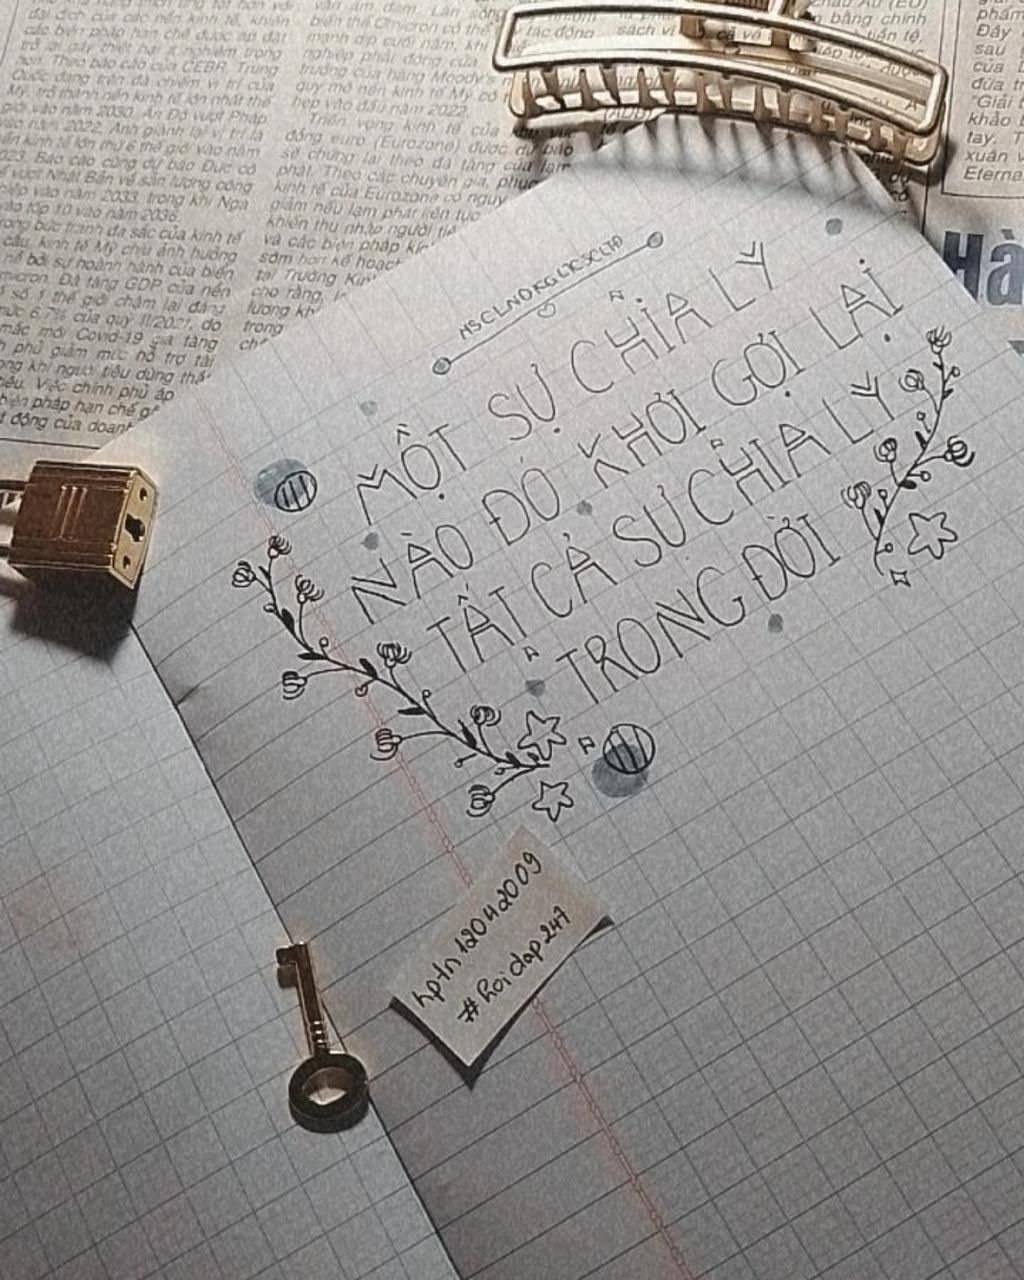 đại dịch của các nền kinh tế, khiến
các biện pháp hạn chế được áp đặt
trở lại gây thiệt hại nghiêm trọng
hơn. Theo báo cáo của CEBR, Trung
Quốc đang trên đà chiếm vị trí của
Mỹ, trở thành nền kinh tế lớn nhất thế
giới vào năm 2030. Ấn Độ vượt Pháp
vào năm 2022, Anh giành lại vị trí là
nền kinh tế lớn thứ 6 thế giới vào năm
2023. Báo cáo cũng dự báo Đức có
vượt Nhật Bản về sản lượng công
nghiệp vào năm 2033, trong khi Nga
vào tốp 10 vào năm 2036.
trong bức tranh đa sắc của kinh tế
cầu, kinh tế Mỹ chịu ảnh hưởng
bởi sự hoành hành của biến
Omicron. Đà tăng GDP của nền
số 1 thế giới chậm lại đáng
mức 6,7% của quý II/2021, do
mắc mới Covid-19 gia tăng
phủ giảm mức hỗ trợ tài
khi người tiêu dùng
Việc chính phủ áp
biện pháp hạn chế
động của doanh
văn ảm đạm. Làn sóng
biến thể Omicron có thể
mạnh dịp cuối năm, khi
nghiệp phát động của
trưởng của hãng Moody's
quy mô nền kinh tế Mỹ có
hẹp vào đầu năm 2022.
Triển vọng kinh tế của khu vực
đồng euro (Eurozone) được dự báo
sẽ chững lại theo đà tăng của lạm
phát. Theo các chuyên gia, phục
kinh tế của Eurozone có nguy
giảm nếu lạm phát liên tục
khiến thu nhập người
và các biện pháp
sớm hơn kế hoạch
tại Trường
cho rằng,
lượng
trong
tác động
sách
(ADB)
châu Âu (EU)
bằng chính
tiền tệ,
phẩm
Đây
sau
của
đứa
"Giải
khảo
tay. T
xuân
Eterna
Hà
MSCLNDKGLTCSCLTD
MỘT SỰ CHIA LY
NÀO ĐÓ KHƠI GỢI LẠI
TẤT CẢ SỰ CHIA LY
TRONG ĐỜI
hptn12042009
#hoidap247